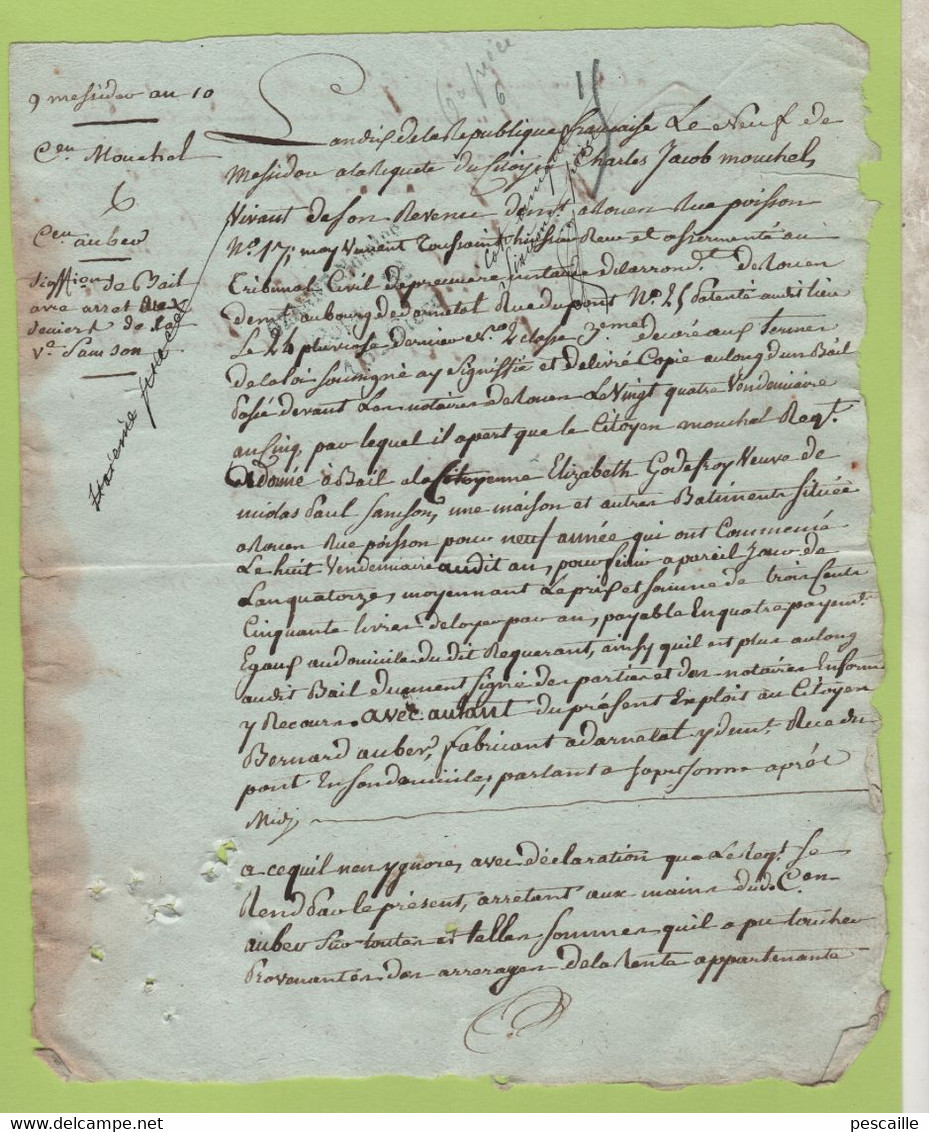 9 messidor an 10
Cen Mouchel
6
Cen auber
Signiffion de Bail
avec arret aux
deniers de la
Ve. Samson
6e pièce
6
1
Landix de la Republique francaise Le Neuf de
Messidor a la Requete du Citoyen Charles Jacob mouchel,
Vivant de son Revenu demt. a Rouen Rue poisson
No. 17, moy Vincent Toussaint huissier Receu et assermenté au
Tribunal Civil de premiere instance de larrondt. de Rouen
demt. au bourg de darnetal Rue du pont No. 25 patenté audit lieu
Le 24 pluviose dernier No. 2 classe 3eme. decoré aux termes
de la loi soussigné ay Signiffié et delivré Copie au long dun Bail
passé devant Les notaires de Rouen Le Vingt quatre Vendemiaire
an Cinq, par lequel il apert que le Citoyen mouchel Reqt.
a donné à Bail a la Citoyenne Elizabeth Godefroy Veuve de
nicolas Paul Samson, une maison et autres Batiments située
a Rouen Rue poisson pour neuf année qui ont Commencé
Le huit Vendemiaire audit an, pour finir a pareil Jour de
Lan quatorze, moyennant Le prix et somme de trois Cents
Cinquante livres de loyer par an, payable En quatre payemts.
Egaux au domicile du dit Requerant, ainsy quil est plus au long
audit Bail duement signé des parties et des notaires En forme
y Recours. avec autant du présent Exploit au Citoyen
Bernard auber, fabricant a darnetal y demt. Rue du
pont En son domicile, parlant a sa personne aprét
Midy
a ce quil nen ygnore, avec déclaration que Le Reqt. se
Rend par le présent, arretant aux mains dud. Cen
auber sur toutes et telles sommes quil a pu toucher
Provenantes des arrerages de la Rente appartenante
pescaille